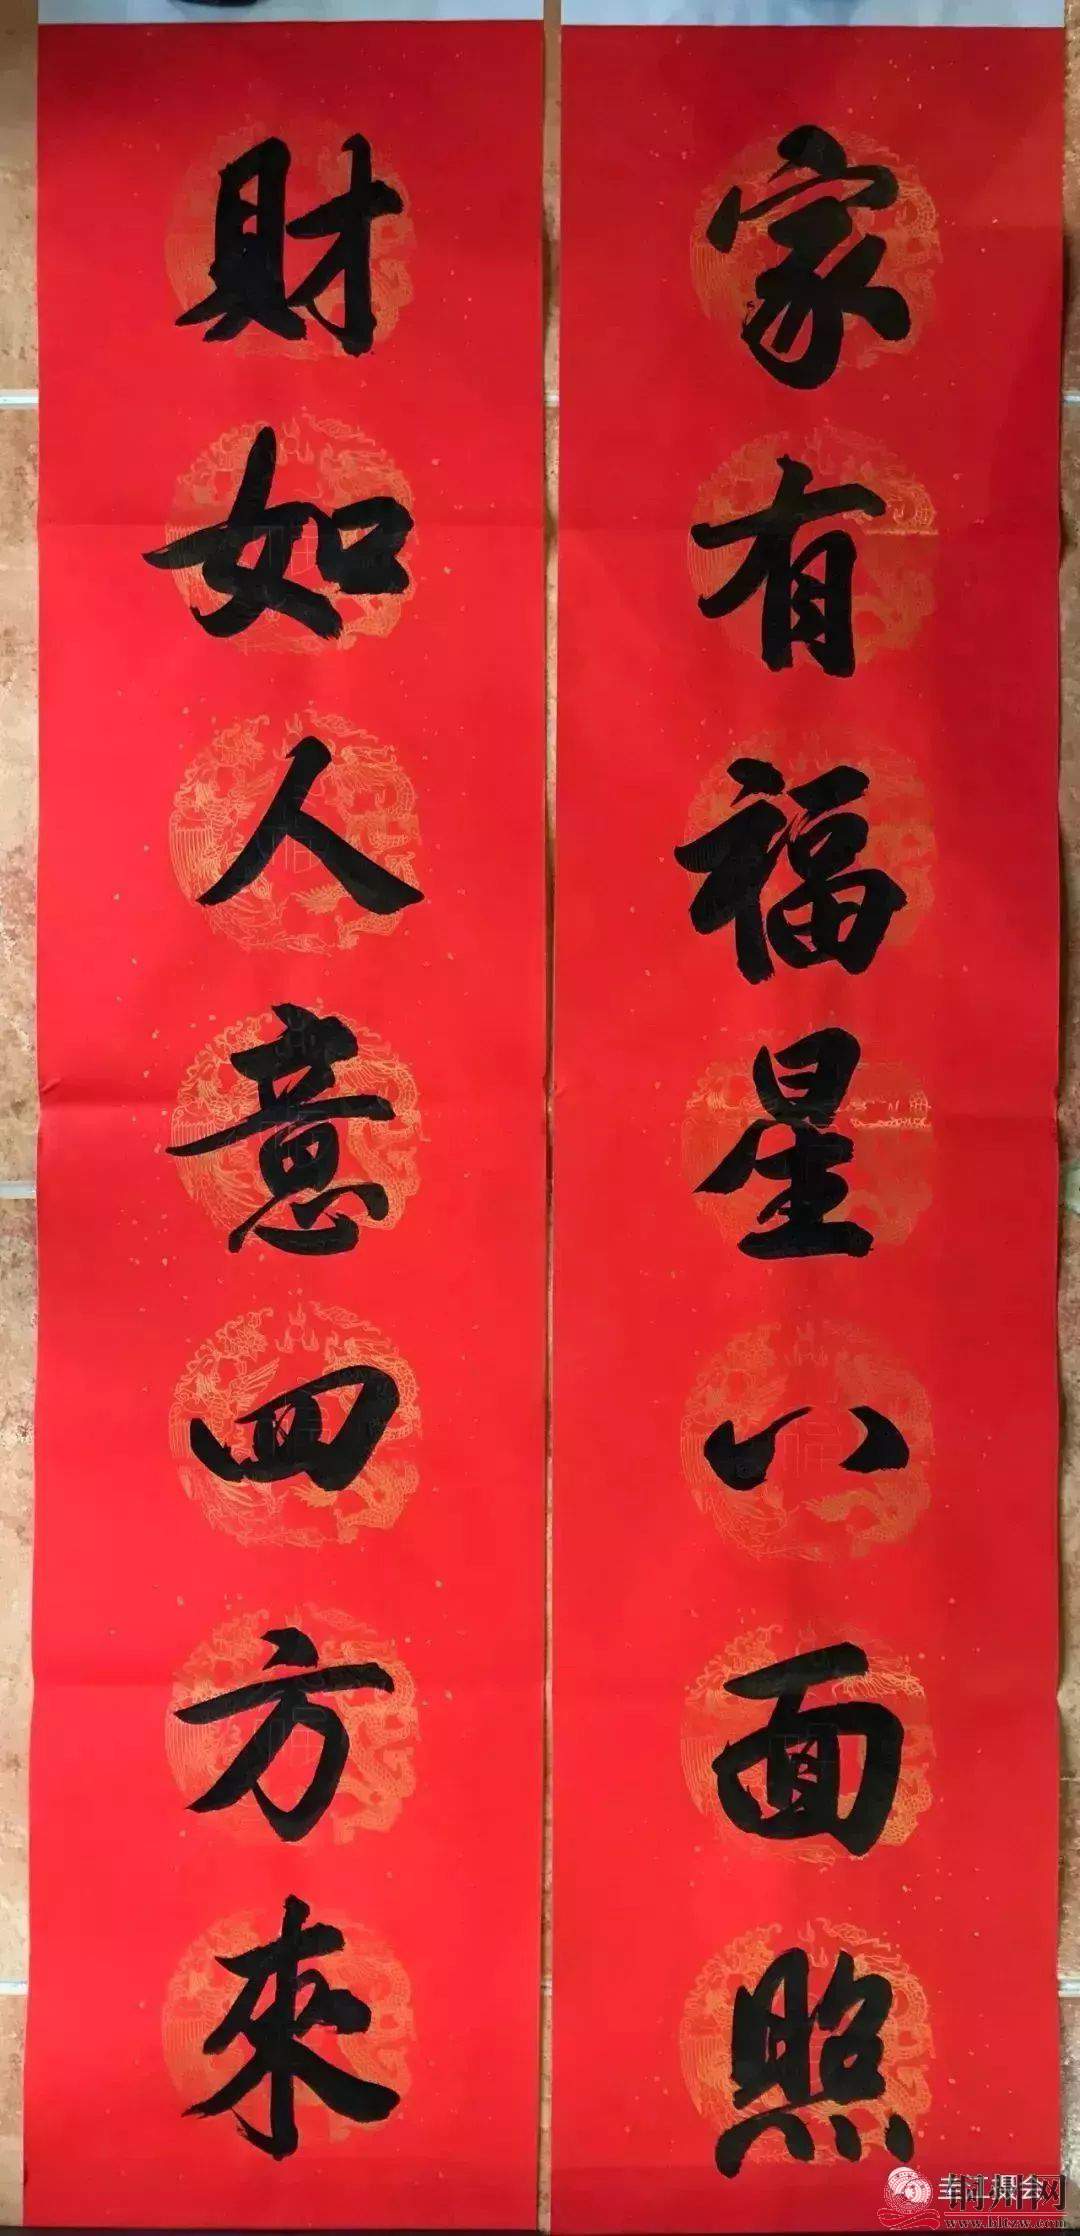 家有福星八面照
財如人意四方來
铜州网
www.hltzw.com